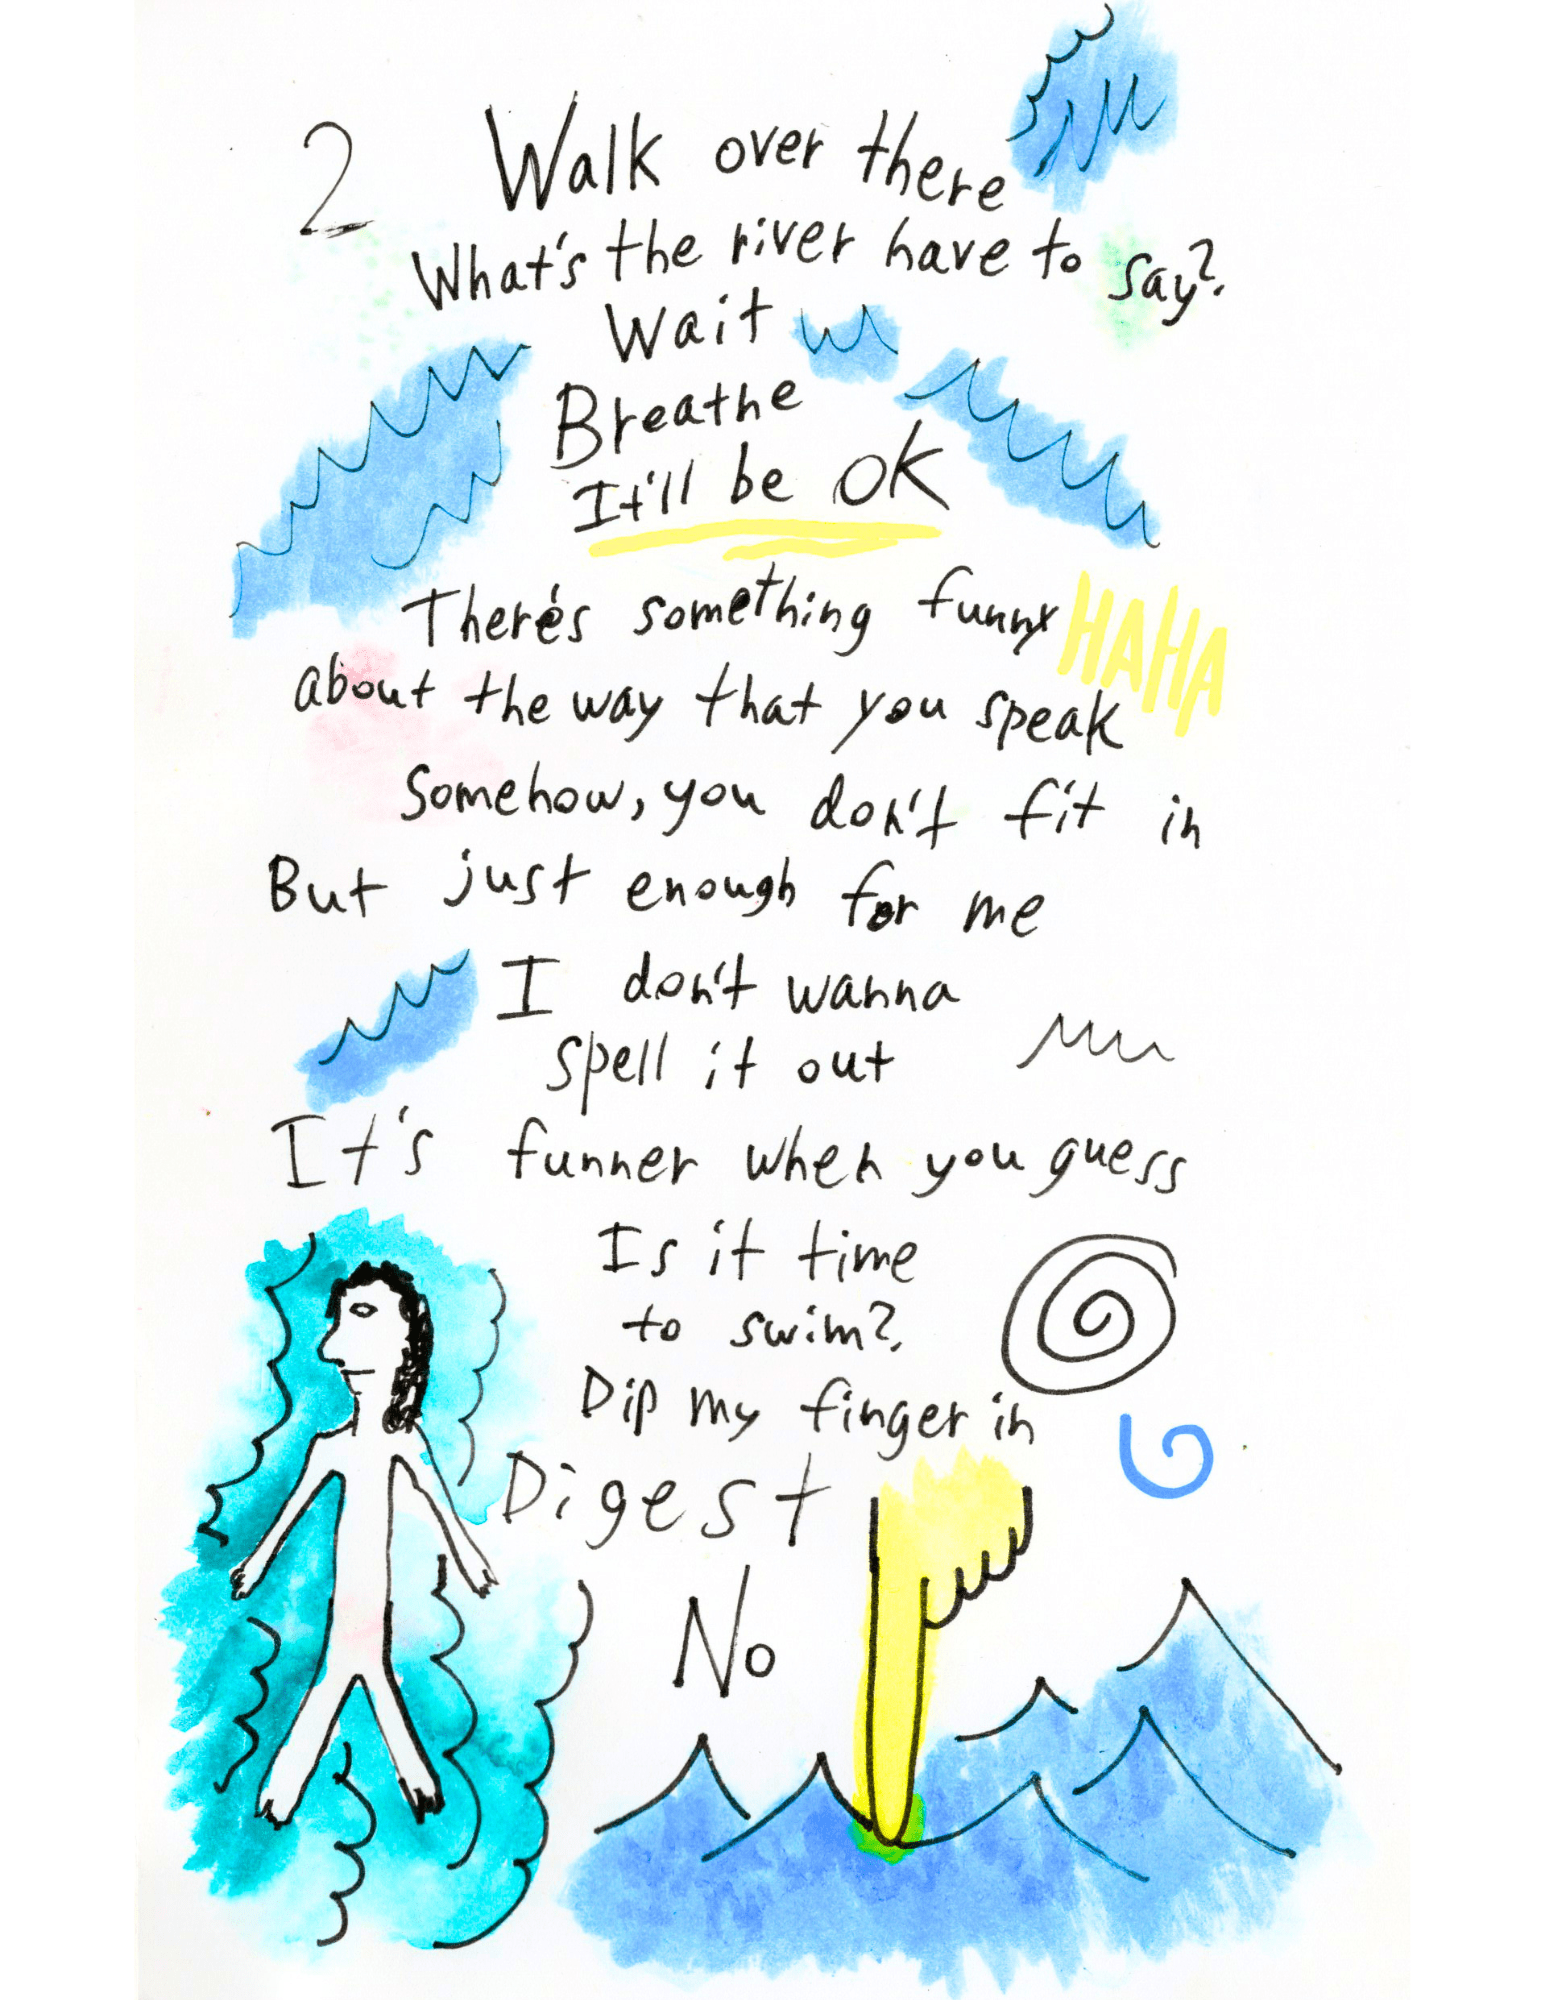 2 Walk over there
What's the river have to say?
Wait
Breathe
It'll be OK
There's something funny HAHA
about the way that you speak
Somehow, you don't fit in
But just enough for me
I don't wanna
spell it out
It's funner when you guess
Is it time
to swim?
Dip my finger in
Digest
No